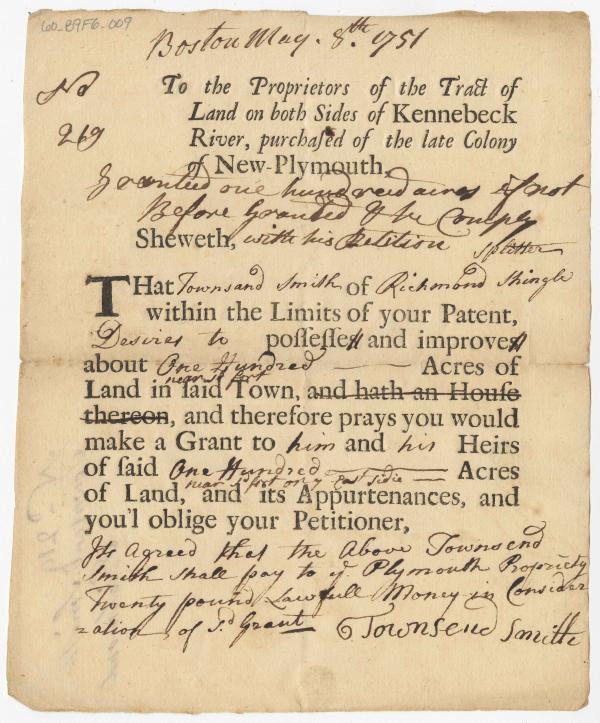 60_89F6_009
Boston May. 8.th 1751
No
269
To the Proprietors of the Tract of
Land on both Sides of Kennebeck
River, purchaſed of the late Colony
of New-Plymouth,
Granted one hundread acres if not
Before Granted & he Comply
Sheweth, with his Petition
Splitter
THat Townsand Smith of Richmond Shingle
within the Limits of your Patent,
Desires to poſſeſſe and improve
about One Hundred Acres of
near sd fort
Land in ſaid Town, and hath an Houſe
thereon, and therefore prays you would
make a Grant to him and his Heirs
of ſaid One Hundred Acres
near sd fort on ye East side
of Land, and its Appurtenances, and
you'l oblige your Petitioner,
Its Agreed that the Above Townsend
Smith shall pay to ye Plymouth Propriety
Twenty pound Lawfull Money in Consider
=ration of Sd Grant Townsend Smith